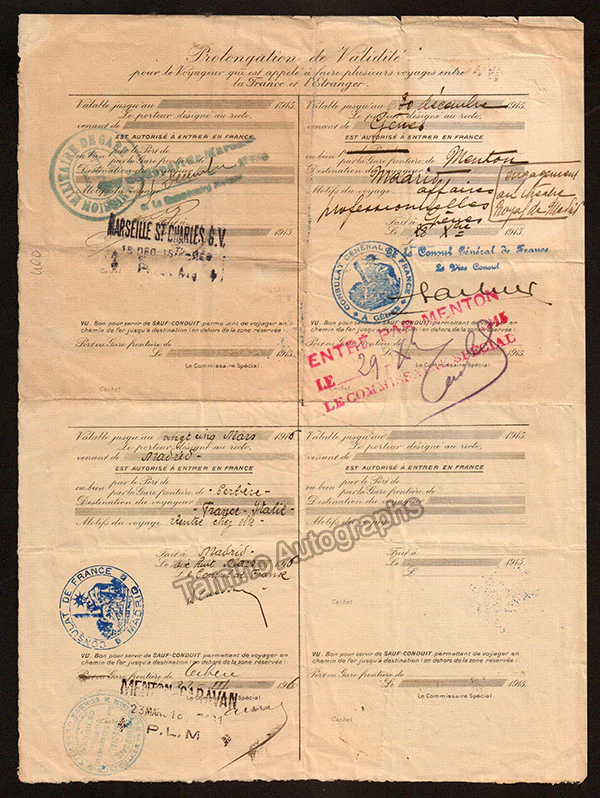 Prolongation de Validité
pour le Voyageur qui est appelé à faire plusieurs voyages entre
la France et l'Etranger.
Valable jusqu'au 1915.
Le porteur désigné au recto,
venant de
EST AUTORISÉ A ENTRER EN FRANCE
ou bien par le Port de
par la Gare frontière de
Destination du voyageur
Motifs du voyage
MARSEILLE ST CHARLES G.V.
15 DEC 15
P.L.M
1915.
VU. Bon pour servir de SAUF-CONDUIT permettant de voyager en
chemin de fer jusqu'à destination (en dehors de la zone réservée)
Port ou Gare frontière de
Le 1915.
Le Commissaire Spécial:
Cachet
Valable jusqu'au 30 décembre 1915.
Le porteur désigné au recto,
venant de Gênes
EST AUTORISÉ A ENTRER EN FRANCE
ou bien par le Port de
par la Gare frontière de Menton
Destination du voyageur Madrid
Motifs du voyage affaires
professionnelles
engagement
au
Royal de Madrid
Fait à Gênes
28 Xbre
Le Consul Général de France
Le Vice Consul
CONSULAT GÉNÉRAL DE FRANCE
A GÊNES
VU. Bon pour servir de SAUF-CONDUIT permettant de voyager en
chemin de fer jusqu'à destination (en dehors de la zone réservée)
ENTRÉ PAR MENTON
LE 29 - 1915
LE COMMISSAIRE SPÉCIAL
Cachet
Valable jusqu'au vingt cinq Mars 1916
Le porteur désigné au recto,
venant de Madrid
EST AUTORISÉ A ENTRER EN FRANCE
ou bien par le Port de
par la Gare frontière de Cerbère
Destination du voyageur
France - Italie
Motifs du voyage rentre chez elle
Fait à Madrid
Le dix huit Mars 1916
Le Consul de France
CONSULAT DE FRANCE A MADRID
VU. Bon pour servir de SAUF-CONDUIT permettant de voyager en
chemin de fer jusqu'à destination (en dehors de la zone réservée)
Port ou Gare frontière de Cerbère
MENTON GARAVAN
23 MARS 16
P.L.M
Valable jusqu'au 1915.
Le porteur désigné au recto,
venant de
EST AUTORISÉ A ENTRER EN FRANCE
ou bien par le Port de
par la Gare frontière de
Destination du voyageur
Motifs du voyage
Fait à
Le 1915.
Cachet
VU. Bon pour servir de SAUF-CONDUIT permettant de voyager en
chemin de fer jusqu'à destination (en dehors de la zone réservée)
Port ou Gare frontière de
Le 1915.
Le Commissaire Spécial:
Cachet
Tamino Autographs